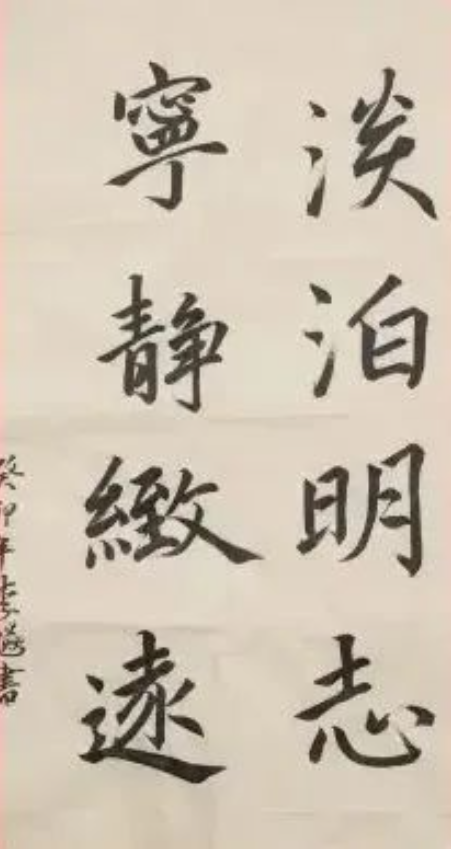 淡泊明志
寧静緻遠
癸卯年書